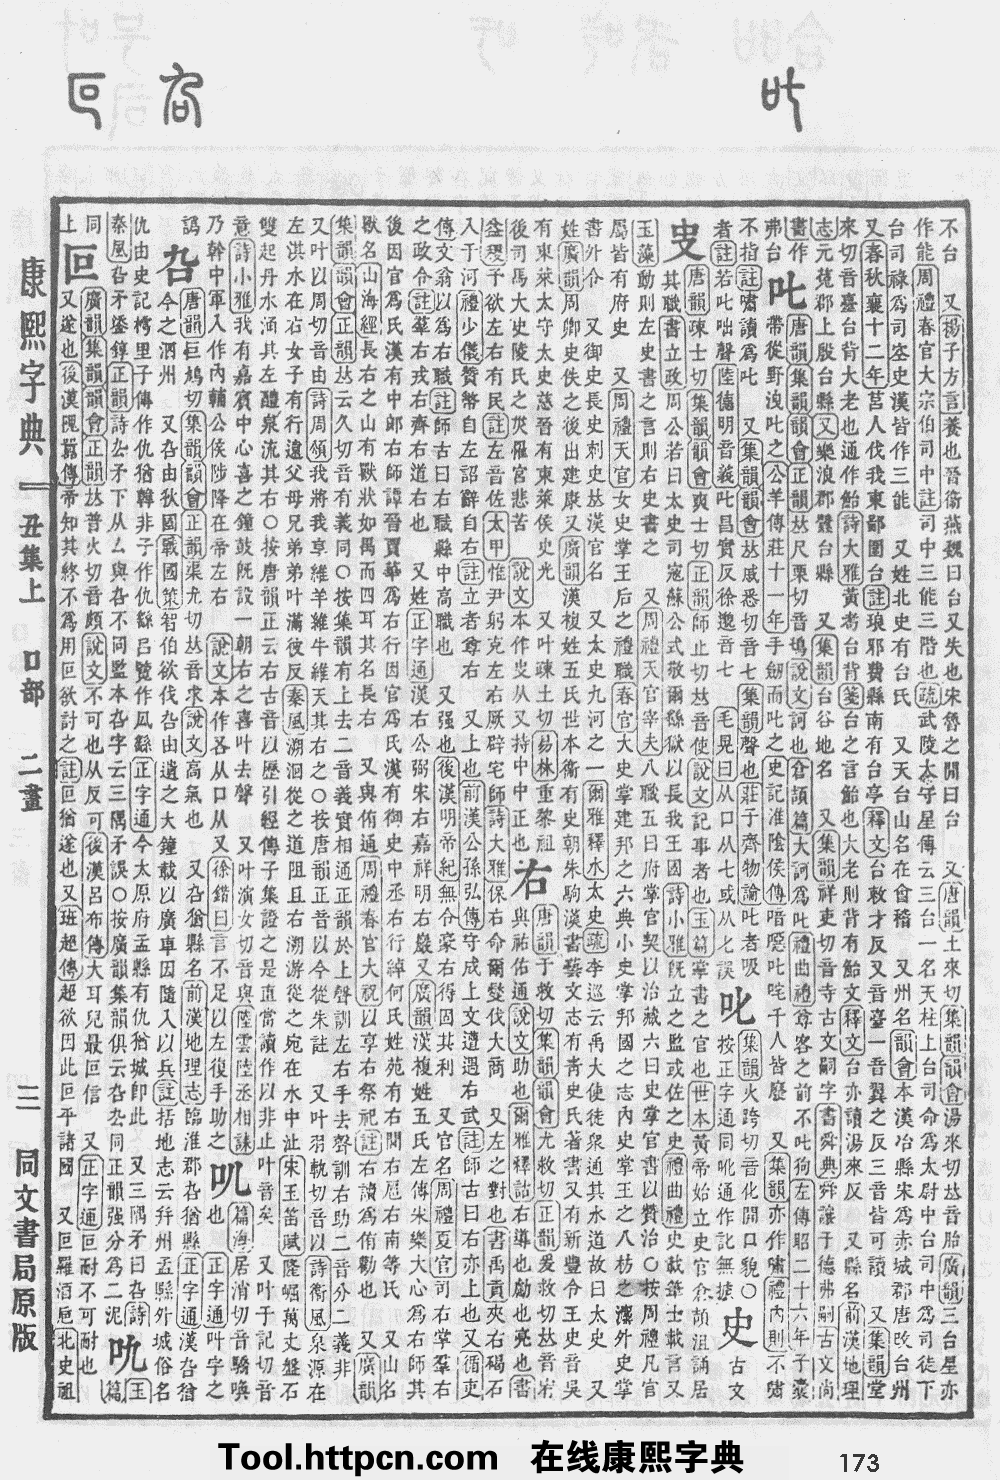 不台　又揚子方言養也晉衞燕魏曰台又失也宋魯之閒曰台　又唐韻土來切集韻韻會湯來切𠀤音胎廣韻三台星亦
作能周禮春官大宗伯司中註司中三能三階也疏武陵太守星傳云三台一名天柱上台司命爲太尉中台司中爲司徒下
台司祿爲司空史漢皆作三能　又姓北史有台氏　又天台山名在會稽　又州名韻會本漢冶縣宋爲赤城郡唐改台州
又春秋襄十二年莒人伐我東鄙圍台註琅邪費縣南有台亭釋文台敕才反又音臺一音翼之反三音皆可讀　又集韻堂
來切音臺台背大老也通作鮐詩大雅黃耇台背箋台之言鮐也大老則背有鮐文釋文台亦讀湯來反　又縣名前漢地理
志元菟郡上殷台縣又樂浪郡蠶台縣　又集韻台谷地名　又集韻祥吏切音寺古文嗣字書舜典舜讓于德弗嗣古文尚
書作弗台
叱
唐韻集韻韻會正韻𠀤尺栗切音鴟說文訶也倉頡篇大訶爲叱禮曲禮尊客之前不叱狗左傳昭二十六年子囊
帶從野洩叱之公羊傳莊十一年手劒而叱之史記淮陰侯傳喑噁叱咤千人皆廢　又集韻亦作嘯禮內則不嘯
不指註嘯讀爲叱　又集韻韻會𠀤戚悉切音七集韻聲也莊子齊物論叱者吸
者註若叱咄聲陸德明音義叱昌實反徐邈音七　毛晃曰从口从七或从匕誤
𠮟
集韻火跨切音化開口貌○
按正字通同吪通作訛無據
史
古文
㕜
唐韻疎士切集韻韻會爽士切正韻師止切𠀤音使說文記事者也玉篇掌書之官也世本黃帝始立史官倉頡沮誦居
其職書立政周公若曰太史司寇蘇公式敬爾繇獄以長我王國詩小雅旣立之監或佐之史禮曲禮史載筆士載言又
玉藻動則左史書之言則右史書之　又周禮天官宰夫八職五曰府掌官契以治藏六曰史掌官書以贊治○按周禮凡官
屬皆有府史　又周禮天官女史掌王后之禮職春官大史掌建邦之六典小史掌邦國之志內史掌王之八枋之灋外史掌
書外令　又御史長史刺史𠀤漢官名　又太史九河之一爾雅釋水太史疏李巡云禹大使徒衆通其水道故曰太史　又
姓廣韻周卿史佚之後出建康又廣韻漢複姓五氏世本衞有史朝朱駒漢書藝文志有靑史氏著書又有新豐令王史音吳
有東萊太守太史慈晉有東萊侯史光　又叶疎土切易林重黎祖
後司馬大史陵氏之災雁宮悲苦　說文本作㕜从又持中中正也
右
唐韻于救切集韻韻會尤救切正韻爰救切𠀤音宥
與祐佑通說文助也爾雅釋詁右導也勴也亮也書
益稷予欲左右有民註左音佐太甲惟尹躬克左右厥辟宅師詩大雅保右命爾燮伐大商　又左之對也書禹貢夾右碣石
入于河禮少儀贊幣自左詔辭自右註立者尊右　又上也前漢公孫弘傳守成上文遭遇右武註師古曰右亦上也又循吏
傳文翁以爲右職註師古曰右職縣中高職也　又强也後漢明帝紀無令豪右得固其利　又官名周禮夏官司右掌羣右
之政令註羣右戎右齊右道右也　又姓正字通漢右公弼宋右嘉祥明右巖又廣韻漢複姓五氏左傳宋樂大心爲右師其
後因官爲氏漢有中郞右師譚晉賈華爲右行因官爲氏漢有御史中丞右行綽何氏姓苑有右閭右扈右南等氏　又山名
獸名山海經長右之山有獸狀如禺而四耳其名長右　又與侑通周禮春官大祝以享右祭祀註右讀爲侑勸也　又廣韻
集韻韻會正韻𠀤云久切音有義同○按集韻有上去二音義實相通正韻於上聲訓左右手去聲訓右助二音分二義非
又叶以周切音由詩周頌我將我享維羊維牛維天其右之○按唐韻正音以今從朱註　又叶羽軌切音以詩衞風泉源在
左淇水在右女子有行遠父母兄弟弟叶滿彼反秦風溯洄從之道阻且右溯游從之宛在水中沚宋玉笛賦隆崛萬丈盤石
雙起丹水涌其左醴泉流其右○按唐韻正云右古音以歷引經傳子集證之是直當讀作以非止叶音矣　又叶于記切音
意詩小雅我有嘉賓中心喜之鐘鼓旣設一朝右之喜叶去聲　又叶演女切音與陸雲陸丞相誄
乃幹中軍入作內輔公侯陟降在帝左右　說文本作右从口从又徐鍇曰言不足以左復手助之
㕨
篇海居消切音驕喚
也　正字通叫字之
譌
叴
唐韻巨鳩切集韻韻會正韻渠尤切𠀤音求說文高氣也　又叴猶縣名前漢地理志臨淮郡叴猶縣正字通漢叴猶
今之泗州　又叴由狄國戰國策智伯欲伐叴由遺之大鐘載以廣車因隨入以兵註括地志云幷州盂縣外城俗名
仇由史記樗里子傳作仇猶韓非子作仇繇呂覽作厹繇正字通今太原府盂縣有仇猶城卽此　又三隅矛曰叴詩
秦風叴矛鋈錞正韻詩厹矛下从厶與叴不同監本叴字云三隅矛誤○按廣韻集韻俱云叴厹同正韻强分爲二泥
吮
玉
篇
同
上
叵
廣韻集韻韻會正韻𠀤普火切音頗說文不可也从反可後漢呂布傳大耳兒最叵信　又正字通叵耐不可耐也
又遂也後漢隗囂傳帝知其終不爲用叵欲討之註叵猶遂也又班超傳超欲因此叵平諸國　又叵羅酒卮北史祖
康熙字典
丑集上　口部　二畫
三
同文書局原版
Tool.httpcn.com　在线康熙字典
173